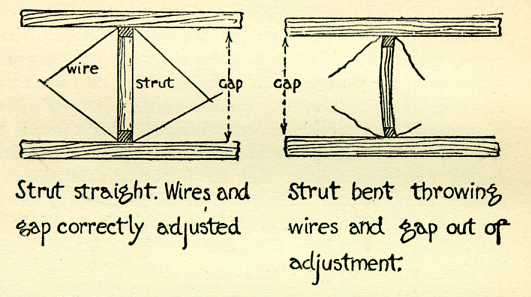 wire
strut
gap
gap
Strut straight. Wires and
gap correctly adjusted
Strut bent throwing
wires and gap out of
adjustment.